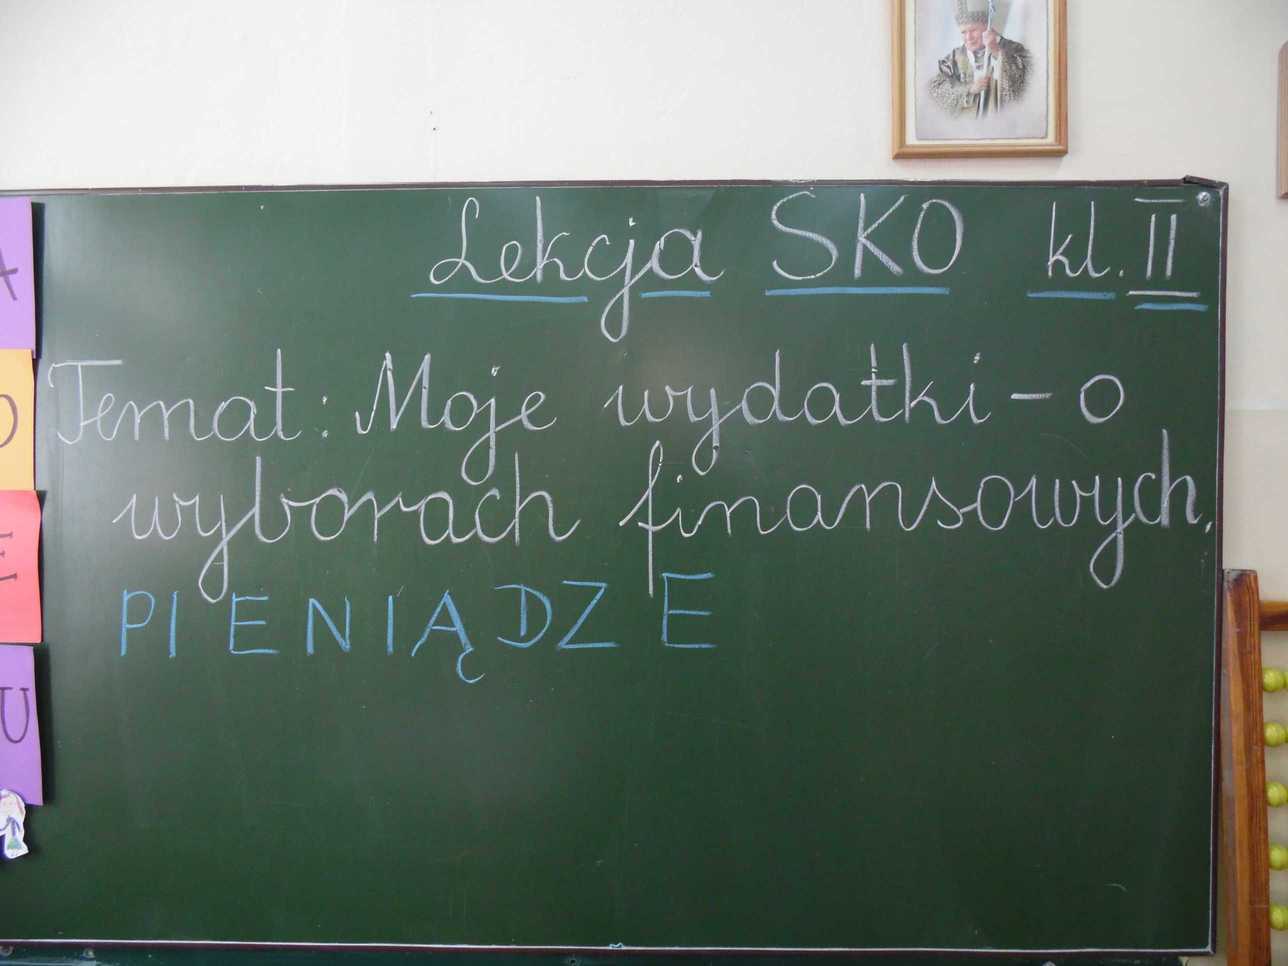 Lekcja SKO kl. II
Temat: Moje wydatki - o
wyborach finansowych.
PIENIĄDZE
U